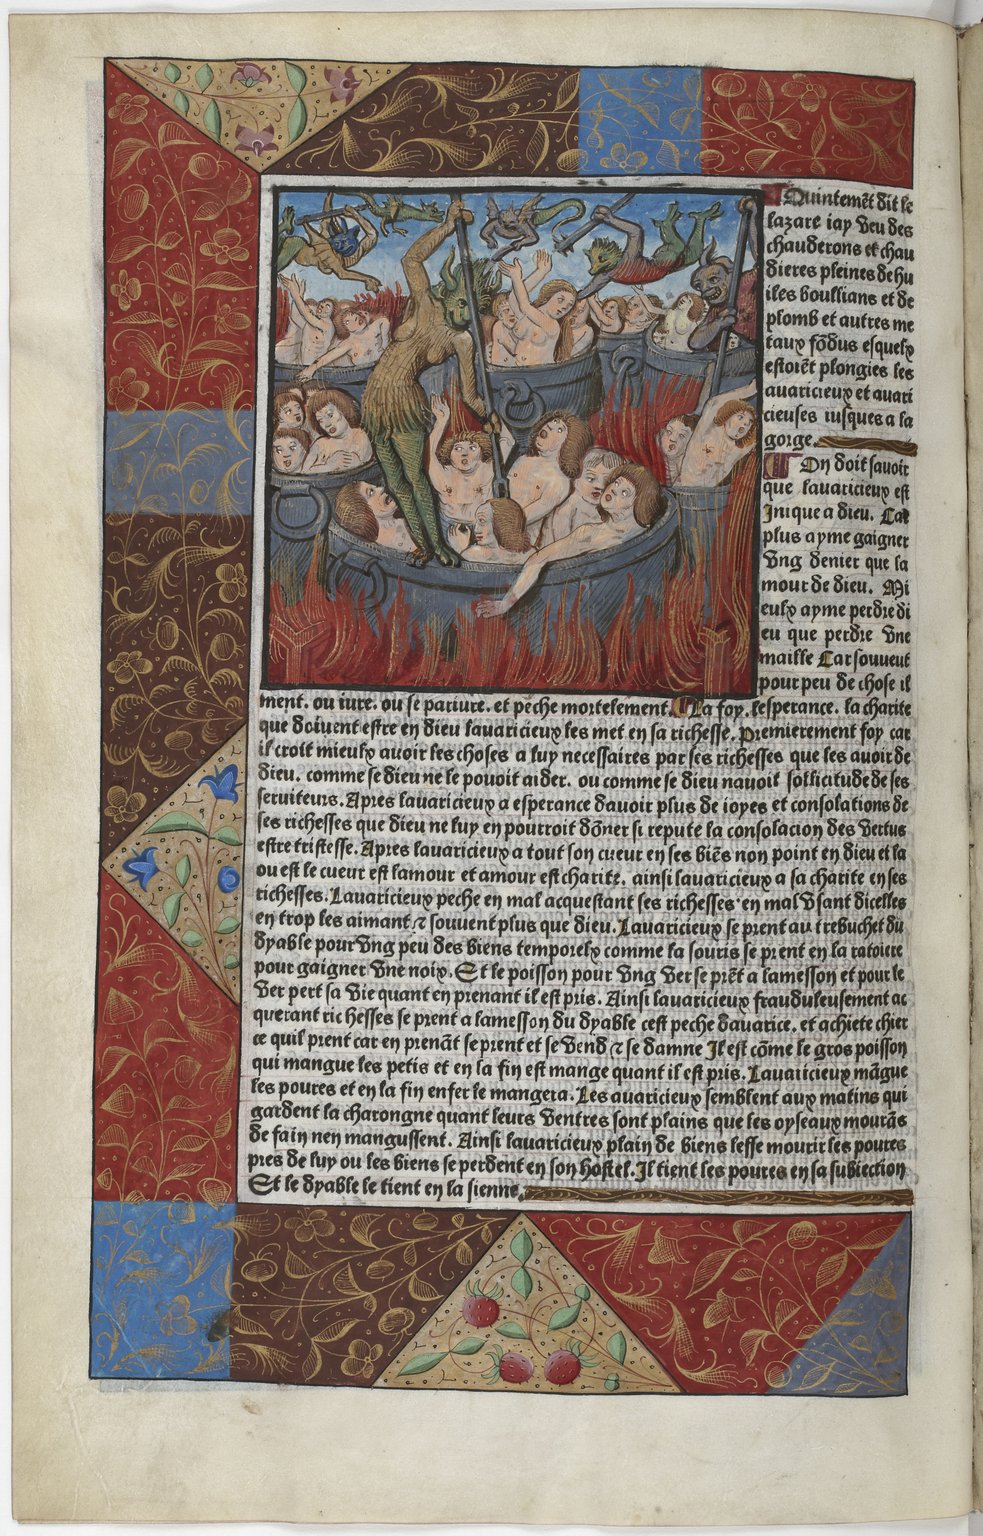 Quintemēt dit le
lazare iay veu des
chauderons et chau
dieres pleines de hu
iles boullians et de
plomb et autres me
taux fōdus esquelx
estoiēt plongies les
auaricieux et auari
cieuses iusques a la
gorge.
On doit sauoir
que lauaricieux est
Inique a dieu. Car
plus ayme gaigner
vng denier que la
mour de dieu. Mi
eulx ayme perdre di
eu que perdre vne
maille Car souuent
pour peu de chose il
ment. ou iure. ou se pariure. et peche mortelement. La foy. lesperance. la charite
que doiuent estre en dieu lauaricieux les met en sa richesse. Premierement foy car
il croit mieulx auoir les choses a luy necessaires par ses richesses que les auoir de
dieu. comme se dieu ne le pouoit aider. ou comme se dieu nauoit sollicitude de ses
seruiteurs. Apres lauaricieux a esperance dauoir plus de ioyes et consolations de
ses richesses que dieu ne luy en pourroit dōner si repute la consolacion des vertus
estre tristesse. Apres lauaricieux a tout son cueur en ses biēs non point en dieu et la
ou est le cueur est lamour et amour est charite. ainsi lauaricieux a sa charite en ses
richesses. Lauaricieux peche en mal acquestant ses richesses en mal vsant dicelles
en trop les aimant ⁊ souuent plus que dieu. Lauaricieux se prent au trebuchet du
dyable pour vng peu des biens temporelx comme la souris se prent en la ratoire
pour gaigner vne noix. Et le poisson pour vng ver se prēt a lamesson et pour le
ver pert sa vie quant en prenant il est pris. Ainsi lauaricieux frauduleusement ac
querant richesses se prent a lamesson du dyable cest peche dauarice. et achiete chier
ce quil prent car en prenāt se prent et se vend ⁊ se damne Il est cōme le gros poisson
qui mangue les petis et en la fin est mange quant il est pris. Lauaricieux māgue
les poures et en la fin enfer le mangera. Les auaricieux semblent aux matins qui
gardent la charongne quant leurs ventres sont plains que les oyseaux mourās
de fain nen mangussent. Ainsi lauaricieux plain de biens lesse mourir les poures
pres de luy ou les biens se perdent en son hostel. Il tient les poures en sa subiection
Et le dyable le tient en la sienne.